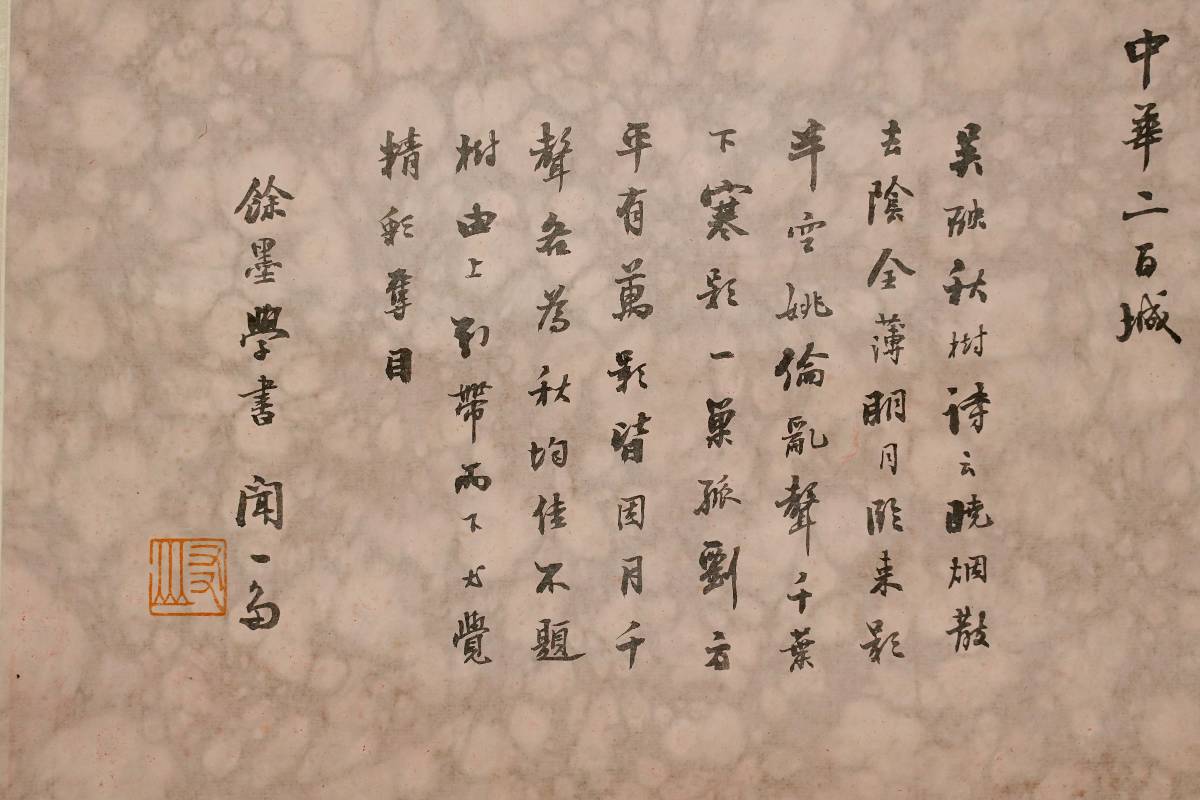 中華二百城
吴融秋樹詩云曉烟散
去陰全薄明月臨来影
半空姚倫亂聲千葉
下寒影一巢孤劉方
平有萬影皆因月千
聲各為秋均佳不題
樹由上到帶而下尤覺
精彩奪目
餘墨學書 聞一多